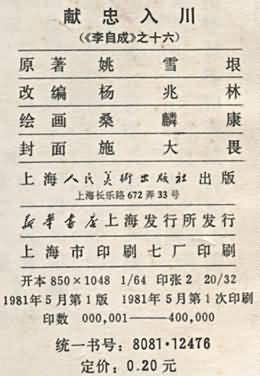 献忠入川
(《李自成》之十六)
原著 姚雪垠
改编 杨兆林
绘画 桑麟康
封面 施大畏
上海人民美術出版社出版
上海长乐路672弄33号
新华書店上海发行所发行
上海市印刷七厂印刷
开本850×1048 1/64 印张2 20/32
1981年5月第1版 1981年5月第1次印刷
印数 000,001——400,000
统一书号：8081·12476
定价：0.20元